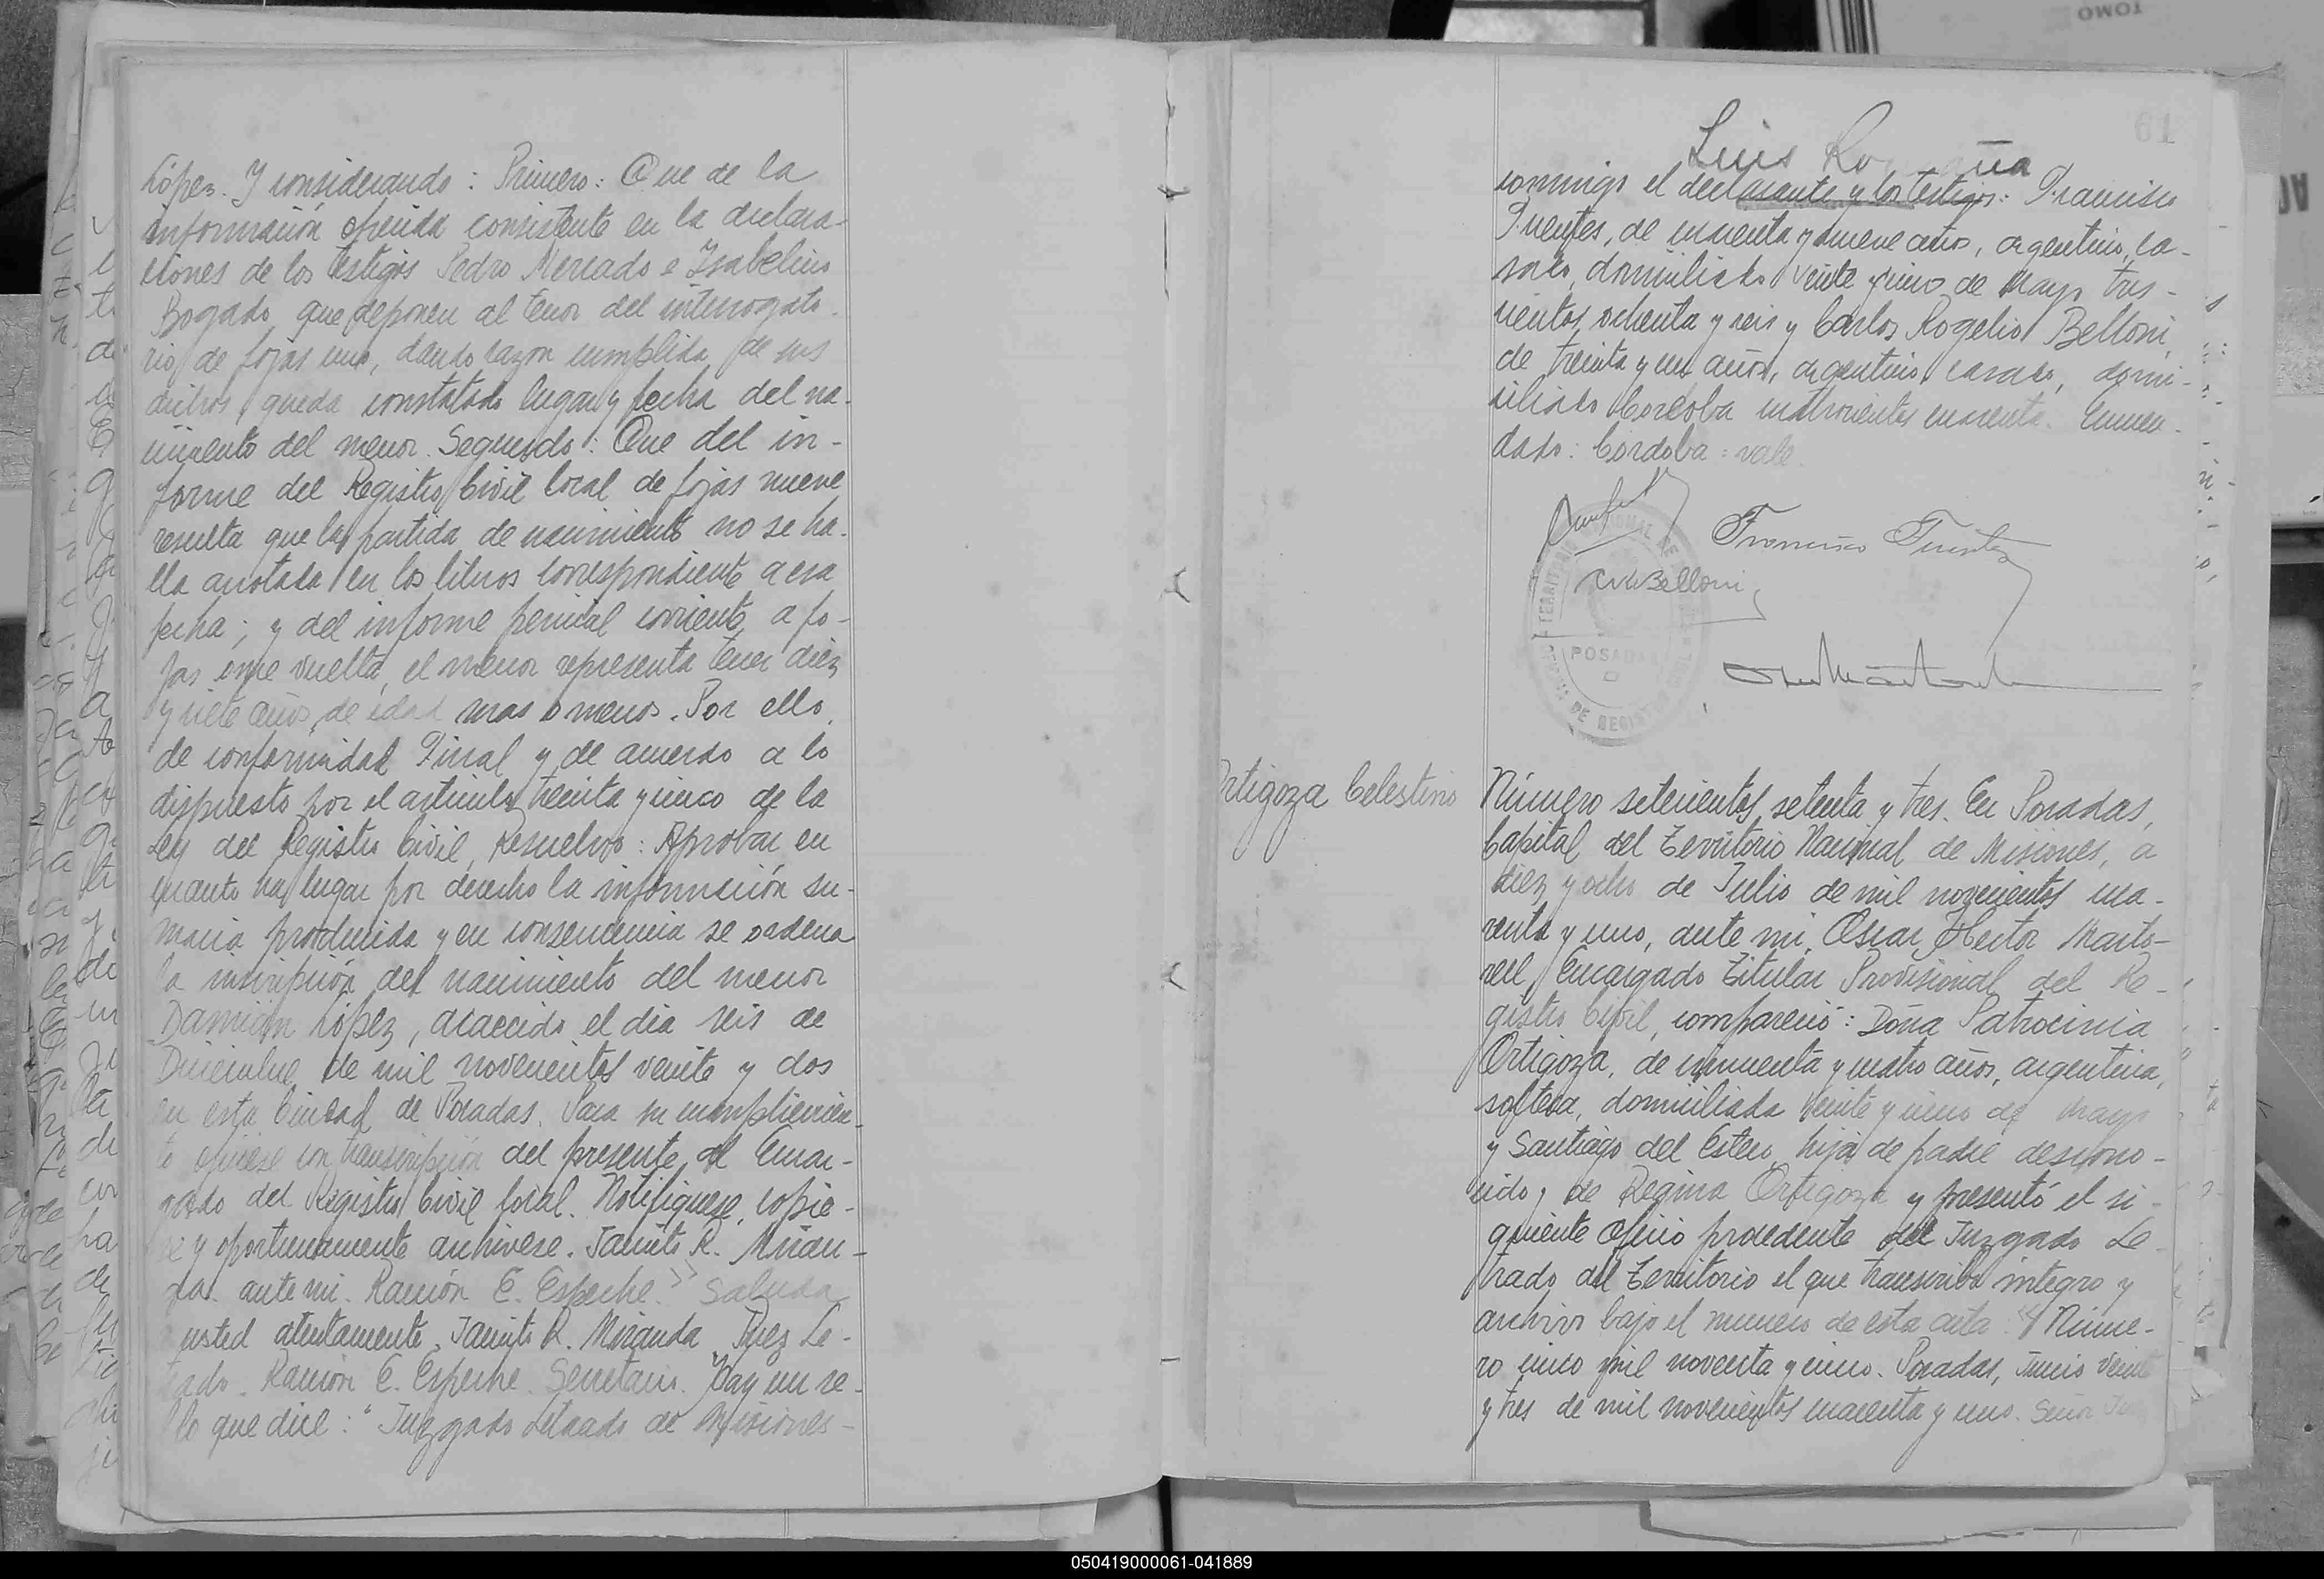 López. Y considerando: Primero: Que de la
información ofrecida consistente en la declara-
ciones de los testigos Pedro Mercado e Isabelino
Bogado que deponen al tenor del interrogato-
rio de fojas una, dando razon cumplida de sus
dichos, queda constatado lugar y fecha del na-
cimiento del menor. Segundo: Que del in-
forme del Registro Civil local de fojas nueve
resulta que la partida de nacimiento no se ha-
lla anotada en los libros correspondiente a esa
fecha; y del informe pericial corriente a fo-
jas once vuelta, el menor representa tener diez
y siete años de edad mas o menos. Por ello,
de conformidad Fiscal y de acuerdo a lo
dispuesto por el articulo treinta y cinco de la
Ley del Registro Civil, Resuelvo: Aprobar en
cuanto ha lugar por derecho la información su-
maria producida y en consecuencia se ordena
la inscripción del nacimiento del menor
Damián López, acaecido el dia seis de
Diciembre de mil novecientos veinte y dos
en esta Ciudad de Posadas. Para su cumplimien-
to ofíciese con transcripción del presente al Encar-
gado del Registro Civil local. Notifíquese, cópie-
se y oportunamente archívese. Jacinto R. Miran-
da. ante mi. Ramón E. Espeche." Saluda
a usted atentamente. Jacinto R. Miranda Juez Le-
trado. Ramón E. Espeche. Secretario. Hay un se-
llo que dice: "Juzgado Letrado de Misiones-
61
Luis Ro ña
conmigo el declarante y los testigos: Francisco
Fuentes, de cuarenta y nueve años, argentino, ca-
sado, domiliado veinte y cinco de Mayo tres-
cientos ochenta y seis y Carlos Rogelio Belloni,
de treinta y un años, argentino, casado, domi-
ciliado Córdoba cuatrocientos cuarenta. Enmen-
dado: Córdoba: vale.
Francisco Fuentes
Belloni
POSADAS
Ortigoza Celestino
Número setecientos setenta y tres. En Posadas,
Capital del Territorio Nacional de Misiones, a
diez y ocho de Julio de mil novecientos cua-
renta y uno, ante mi, Oscar Hector Marto-
rell Encargado Titular Provisional del Re-
gistro Civil, compareció: Doña Patrocinia
Ortigoza, de cincuenta y cuatro años, argentina,
soltera, domiciliada Veinte y cinco de Mayo
y Santiago del Estero, hija de padre descono-
cido y de Regina Ortigoza y presentó el si-
guiente oficio procedente del Juzgado Le-
trado del Territorio el que transcribo integro y
archivo bajo el numero de esta acta: "Núme-
ro cinco mil noventa y cinco. Posadas, Junio veinte
y tres de mil novecientos cuarenta y uno. Señor
TOMO
050419000061-041889